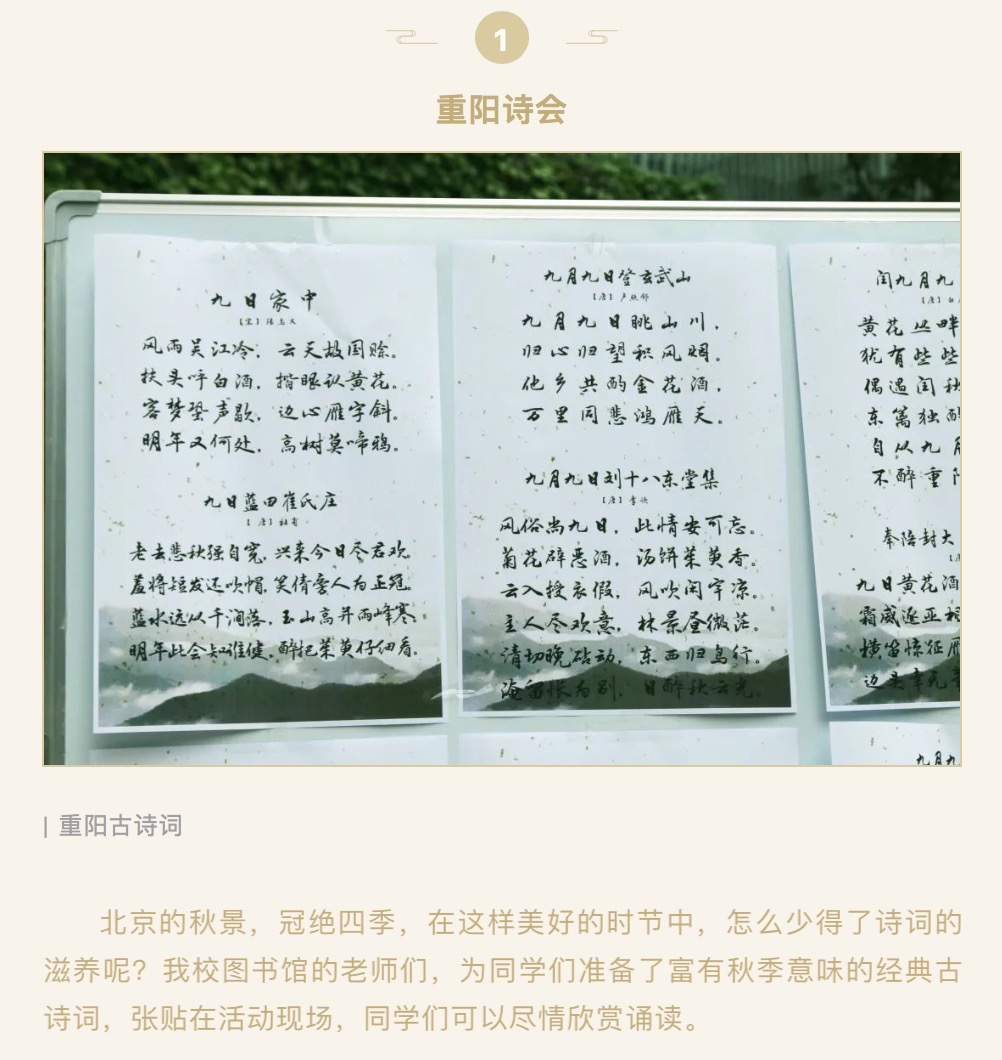 1
重阳诗会
九日家中
【宋】陈与义
风雨吴江冷,云天故国赊。
扶头呼白酒,揩眼认黄花。
客梦蛩声歇,边心雁字斜。
明年又何处,高树莫啼鸦。
九日蓝田崔氏庄
【唐】杜甫
老去悲秋强自宽,兴来今日尽君欢
羞将短发还吹帽,笑倩旁人为正冠。
蓝水远从千涧落,玉山高并两峰寒。
明年此会知谁健,醉把茱萸仔细看。
九月九日登玄武山
【唐】卢照邻
九月九日眺山川,
归心归望积风烟。
他乡共酌金花酒,
万里同悲鸿雁天。
九月九日刘十八东堂集
【唐】李颀
风俗尚九日,此情安可忘。
菊花辟恶酒,汤饼茱萸香。
云入授衣假,风吹闲宇凉。
主人尽欢意,林景昼微茫。
清切晚砧动,东西归鸟行。
淹留怅为别,日醉秋云光。
闰九月九
黄花丛畔
犹有些些
偶遇闰秋
东篱独酌
自从九月
不醉重阳
奉陪封大
九日黄花酒
霜威逐亚相
横笛惊征雁
边头幸无
九月九
| 重阳古诗词
北京的秋景,冠绝四季,在这样美好的时节中,怎么少得了诗词的
滋养呢?我校图书馆的老师们,为同学们准备了富有秋季意味的经典古
诗词,张贴在活动现场,同学们可以尽情欣赏诵读。